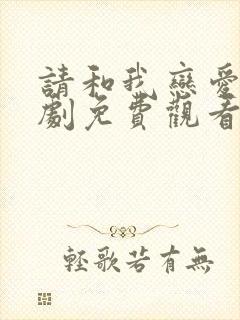 請和我戀愛
劇免費觀看
輕歌若有無